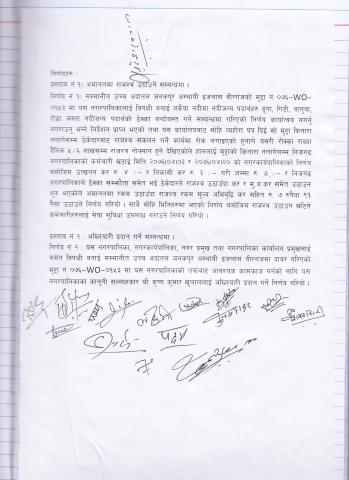 निर्णयहरु :
प्रस्ताव नं १) अमानतमा राजश्व उठाउने सम्बन्धमा ।
निर्णय नं १) सम्मानीत उच्च अदालत जनकपुर अस्थायी इजलास वीरगंजको मुद्दा नं ०७६-WO-
०१५३ मा यस नगरपालिकालाई विपक्षी बनाई बकैया नदीमा नदीजन्य पदार्थहरु ढुंगा, गिटी, बालुवा,
रोडा जस्ता नदीजन्य पदार्थको ठेक्का बन्दोवस्त गर्ने सम्बन्धमा गरिएको निर्णय कार्यान्वयन नगर्नु
नगराउनु भन्ने निर्देशन प्राप्त भएको तथा यस कार्यालयबाट सोहि व्यहोरा पत्र दिई सो मुद्दा किनारा
नलागेसम्म ठेकेदारबाट राजश्व संकलन गर्ने कार्यमा रोक लगाइएको हुनाले यसरी रोक्का राख्दा
दैनिक ५/६ लाखसम्म राजश्व नोक्सान हुने देखिएकोले हाललाई मुद्दाको किनारा नलागेसम्म निजगढ
नगरपालिकाको कर्मचारी खटाई मिति २०७६/०४/०३ र २०७६/०४/२० को नगरकार्यपालिकाको निर्णय
बमोजिम उत्खनन कर रु ४ /- र निकासी कर रु ३ /- गरी जम्मा रु ७ /- र निजगढ
नगरपालिकाले ठेक्का सम्झौता समेत भई ठेकेदारले राजश्व उठाउँदा कर र मु.अ.कर समेत उठाउन
शुरु भएकोले अमानतमा रकम उठाउँदा राजश्व रकम मूल्य अभिवृद्धि कर सहित रु ७ रुपैया ९१
पैसा उठाउने निर्णय गरियो । साथै सोहि मितिहरुमा भएको निर्णय बमोजिम राजश्व उठाउन खटिने
कर्मचारीहरुलाई सेवा सुविधा उपलब्ध गराउने निर्णय गरियो ।
प्रस्ताव नं २ : अख्तियारी प्रदान गर्ने सम्बन्धमा ।
निर्णय नं २ : यस नगरपालिका, नगरकार्यपालिका, नगर प्रमुख तथा नगरपालिका कार्यालय प्रमुखलाई
समेत विपक्षी बनाई सम्मानीत उच्च अदालत जनकपुर अस्थायी इजलास वीरगंजमा दायर गरिएको
मुद्दा नं ०७६-WO-०१५३ मा यस नगरपालिकाको तर्फबाट आवश्यक कामकाज गर्नको लागि यस
नगरपालिकाका कानूनी सल्लाहकार श्री कृष्ण कुमार खुलाललाई अख्तियारी प्रदान गर्ने निर्णय गरियो ।